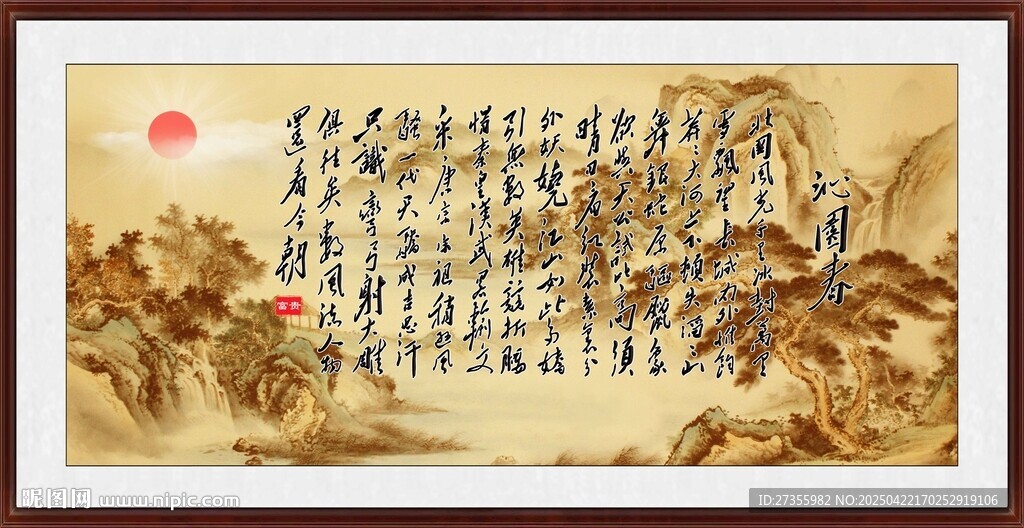 沁園春
北国风光千里冰封萬里
雪飘望长城内外惟余
莽〻大河上下顿失滔〻山
舞银蛇原驱腊象
欲与天公试比高须
晴日看红装素裹分
外妖娆江山如此多娇
引无数英雄竞折腰
惜秦皇汉武略输文
采唐宗宋祖稍逊风
骚一代天骄成吉思汗
只識彎弓射大雕
俱往矣数风流人物
還看今朝
富贵
昵图网 www.nipic.com
ID:27355982 NO:20250422170252919106